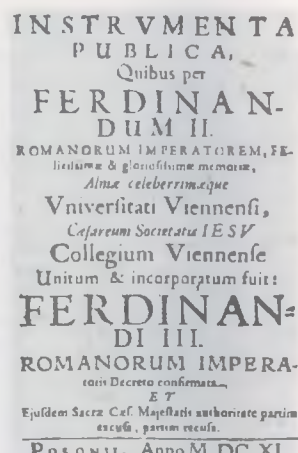 INSTRVMENTA
PUBLICA,
Quibus per
FERDINAN-
DUM II.
ROMANORUM IMPERATOREM, FE-
licissimæ & gloriosissimæ memoriæ,
Almæ celeberrimæque
Vniversitati Viennensi,
Cæsareum Societatis IESV
Collegium Viennense
Unitum & incorporatum fuit:
FERDINAN-
DI III.
ROMANORUM IMPERA-
toris Decreto confirmata
ET
Ejusdem Sacræ Cæs. Majestatis authoritate partim
excusa, partim recusa.
Anno M. DC XL